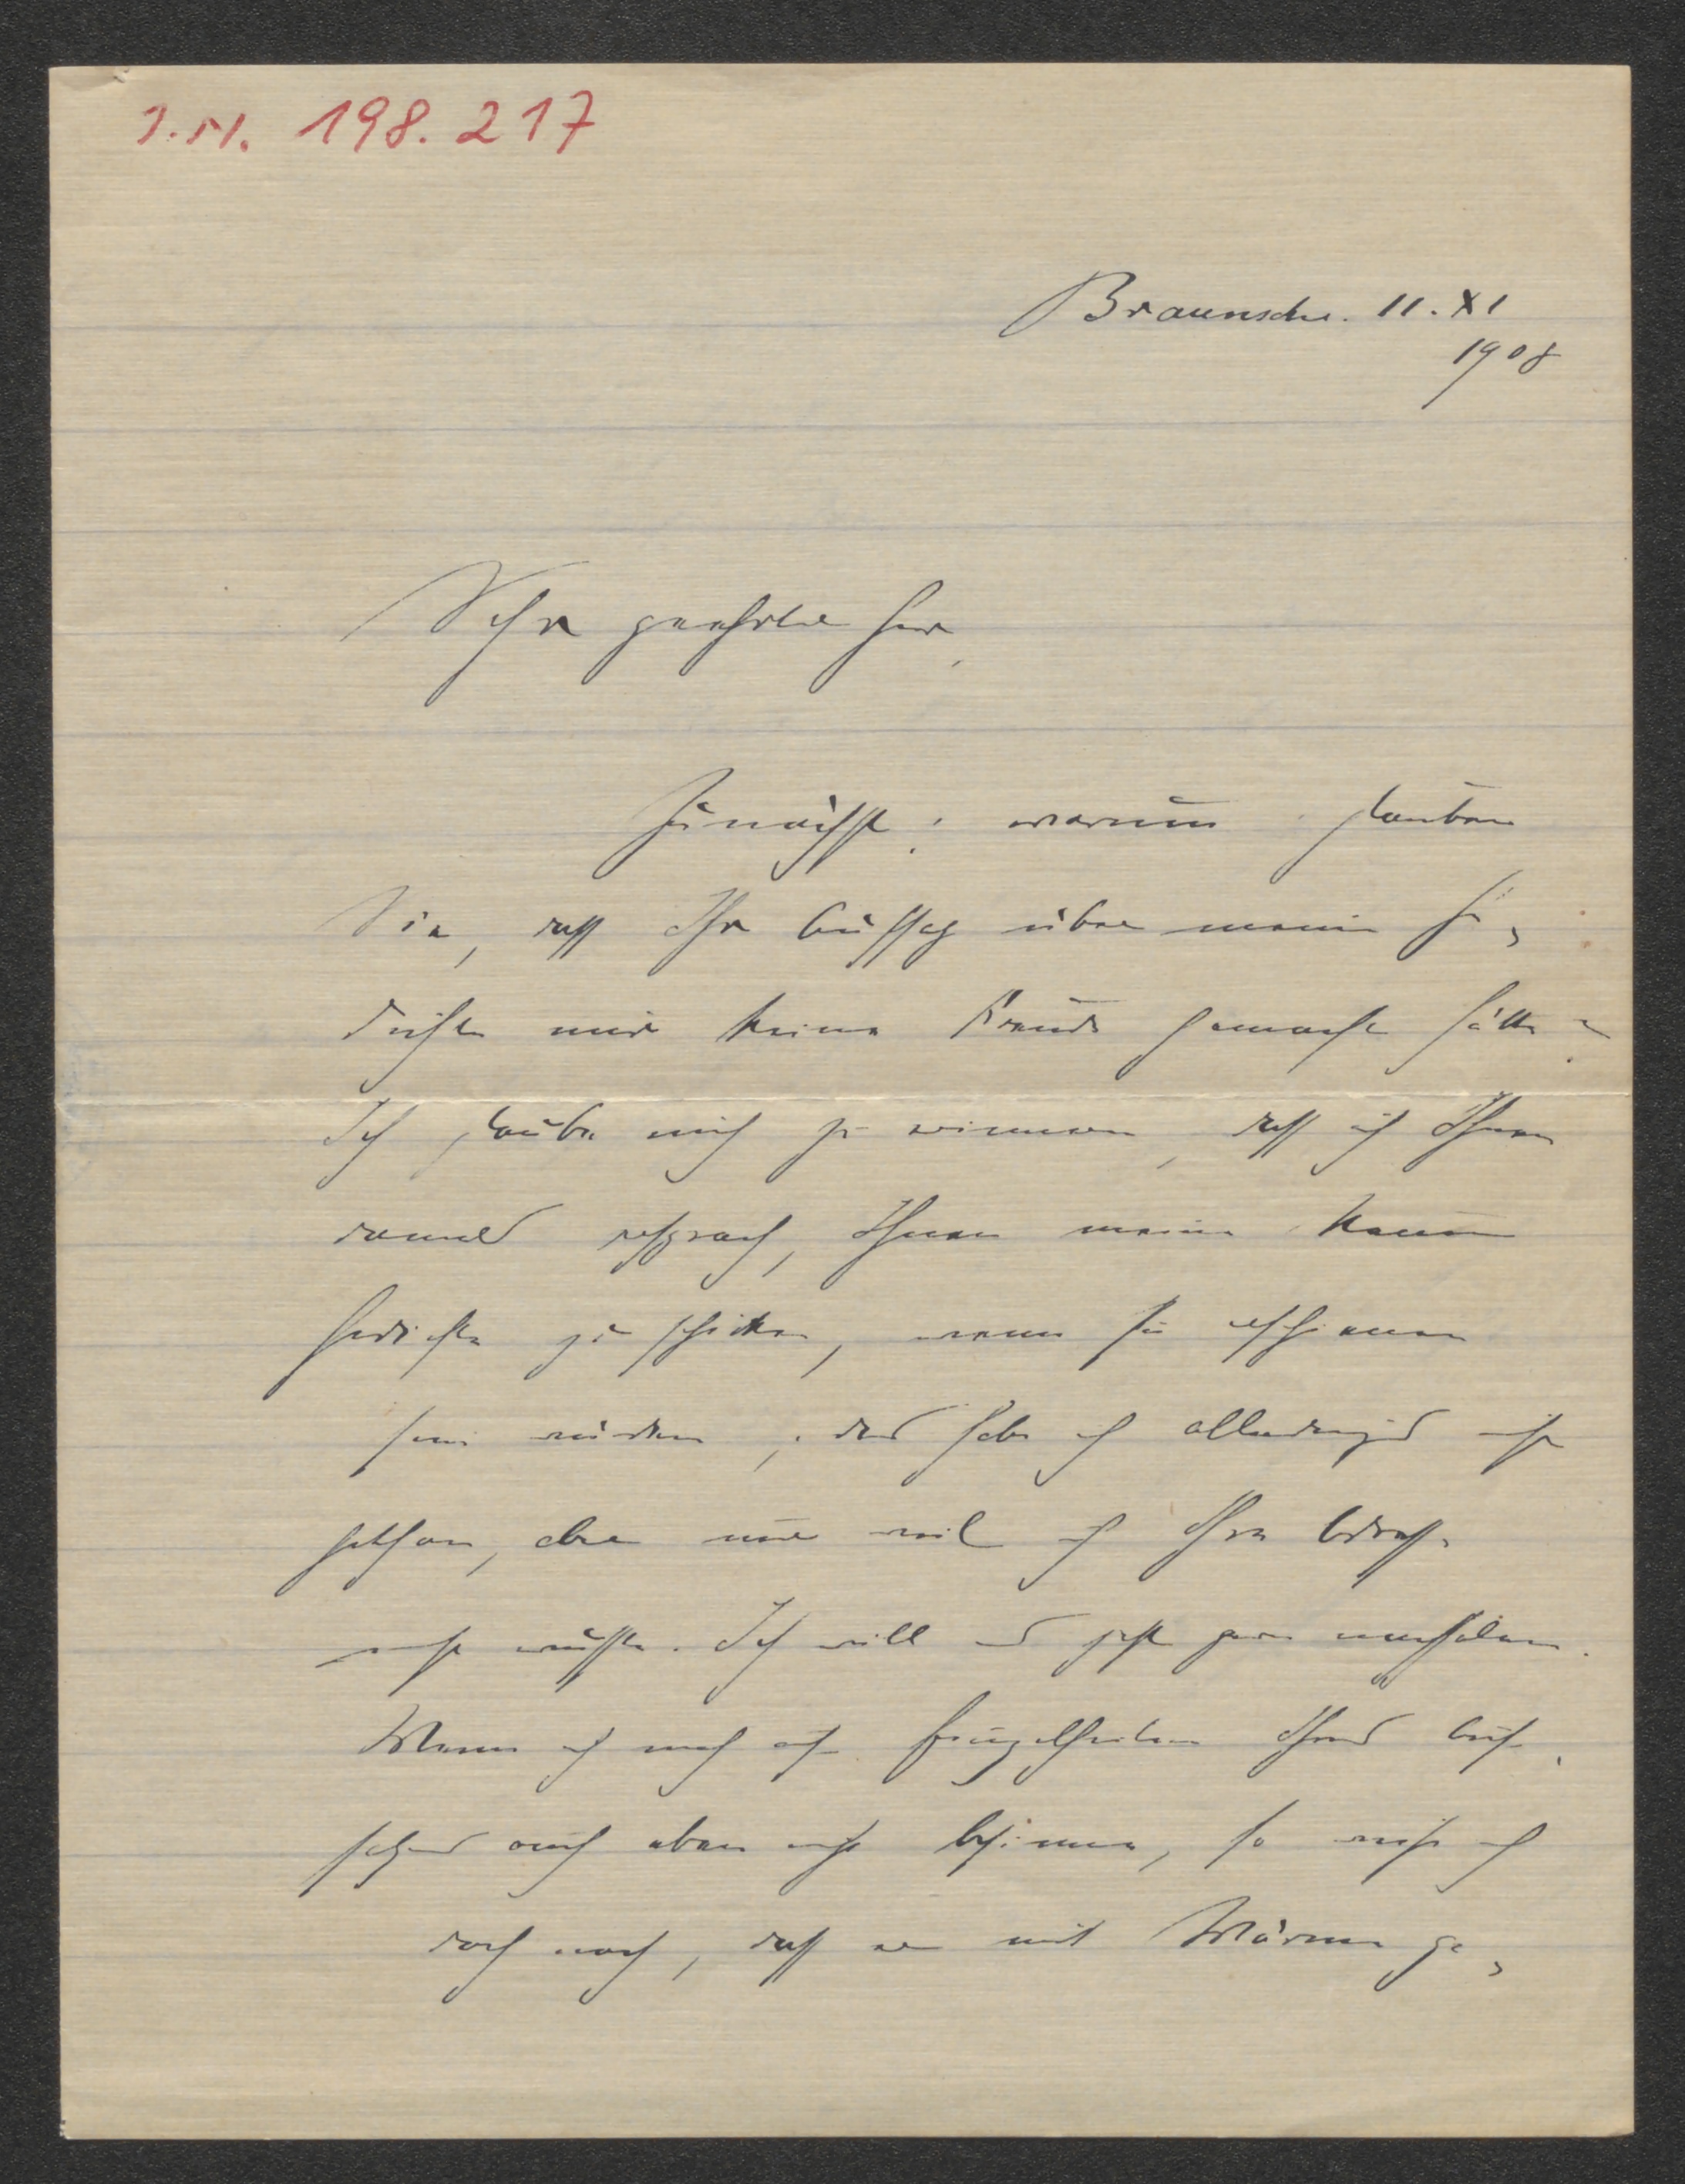 I.N. 198.217
Braunschw. 11. XI
1908
Sehr geehrter Herr,
Zunächst: warum glauben
Sie, dass Ihr Aufsatz über meine Ge-
dichte mir keine Freude gemacht hätte?
Ich glaube mich zu erinnern, dass ich Ihnen
damals versprach, Ihnen meine neuen
Gedichte zu schicken, wenn sie erschienen
sein würden; das habe ich allerdings nicht
gethan, aber nur weil ich Ihre Adresse
nicht wusste. Ich will es jetzt gern nachholen.
Wenn ich mich auf Einzelheiten Ihres Auf-
satzes auch eben nicht besinne, so weiss ich
doch noch, dass er mit Wärme ge-